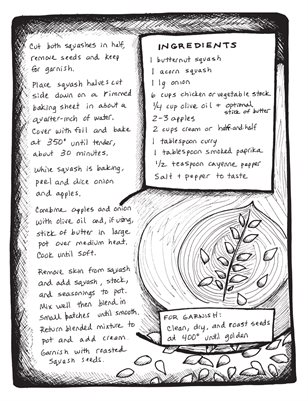 Cut both squashes in half,
remove seeds and keep
for garnish.
Place squash halves cut
side down on a rimmed
baking sheet in about a
quarter-inch of water.
Cover with foil and bake
at 350° until tender,
about 30 minutes.
While squash is baking,
peel and dice onion
and apples.
Combine apples and onion
with olive oil and, if using,
stick of butter in large
pot over medium heat.
Cook until soft.
Remove skin from squash
and add squash, stock,
and seasonings to pot.
Mix well then blend in
small batches until smooth.
Return blended mixture to
pot and add cream.
Garnish with roasted
squash seeds.
INGREDIENTS
1 butternut squash
1 acorn squash
1 lg onion
6 cups chicken or vegetable stock
1/4 cup olive oil + optional stick of butter
2-3 apples
2 cups cream or half-and-half
1 tablespoon curry
1 tablespoon smoked paprika
1/2 teaspoon cayenne pepper
Salt + pepper to taste
FOR GARNISH:
Clean, dry, and roast seeds
at 400° until golden